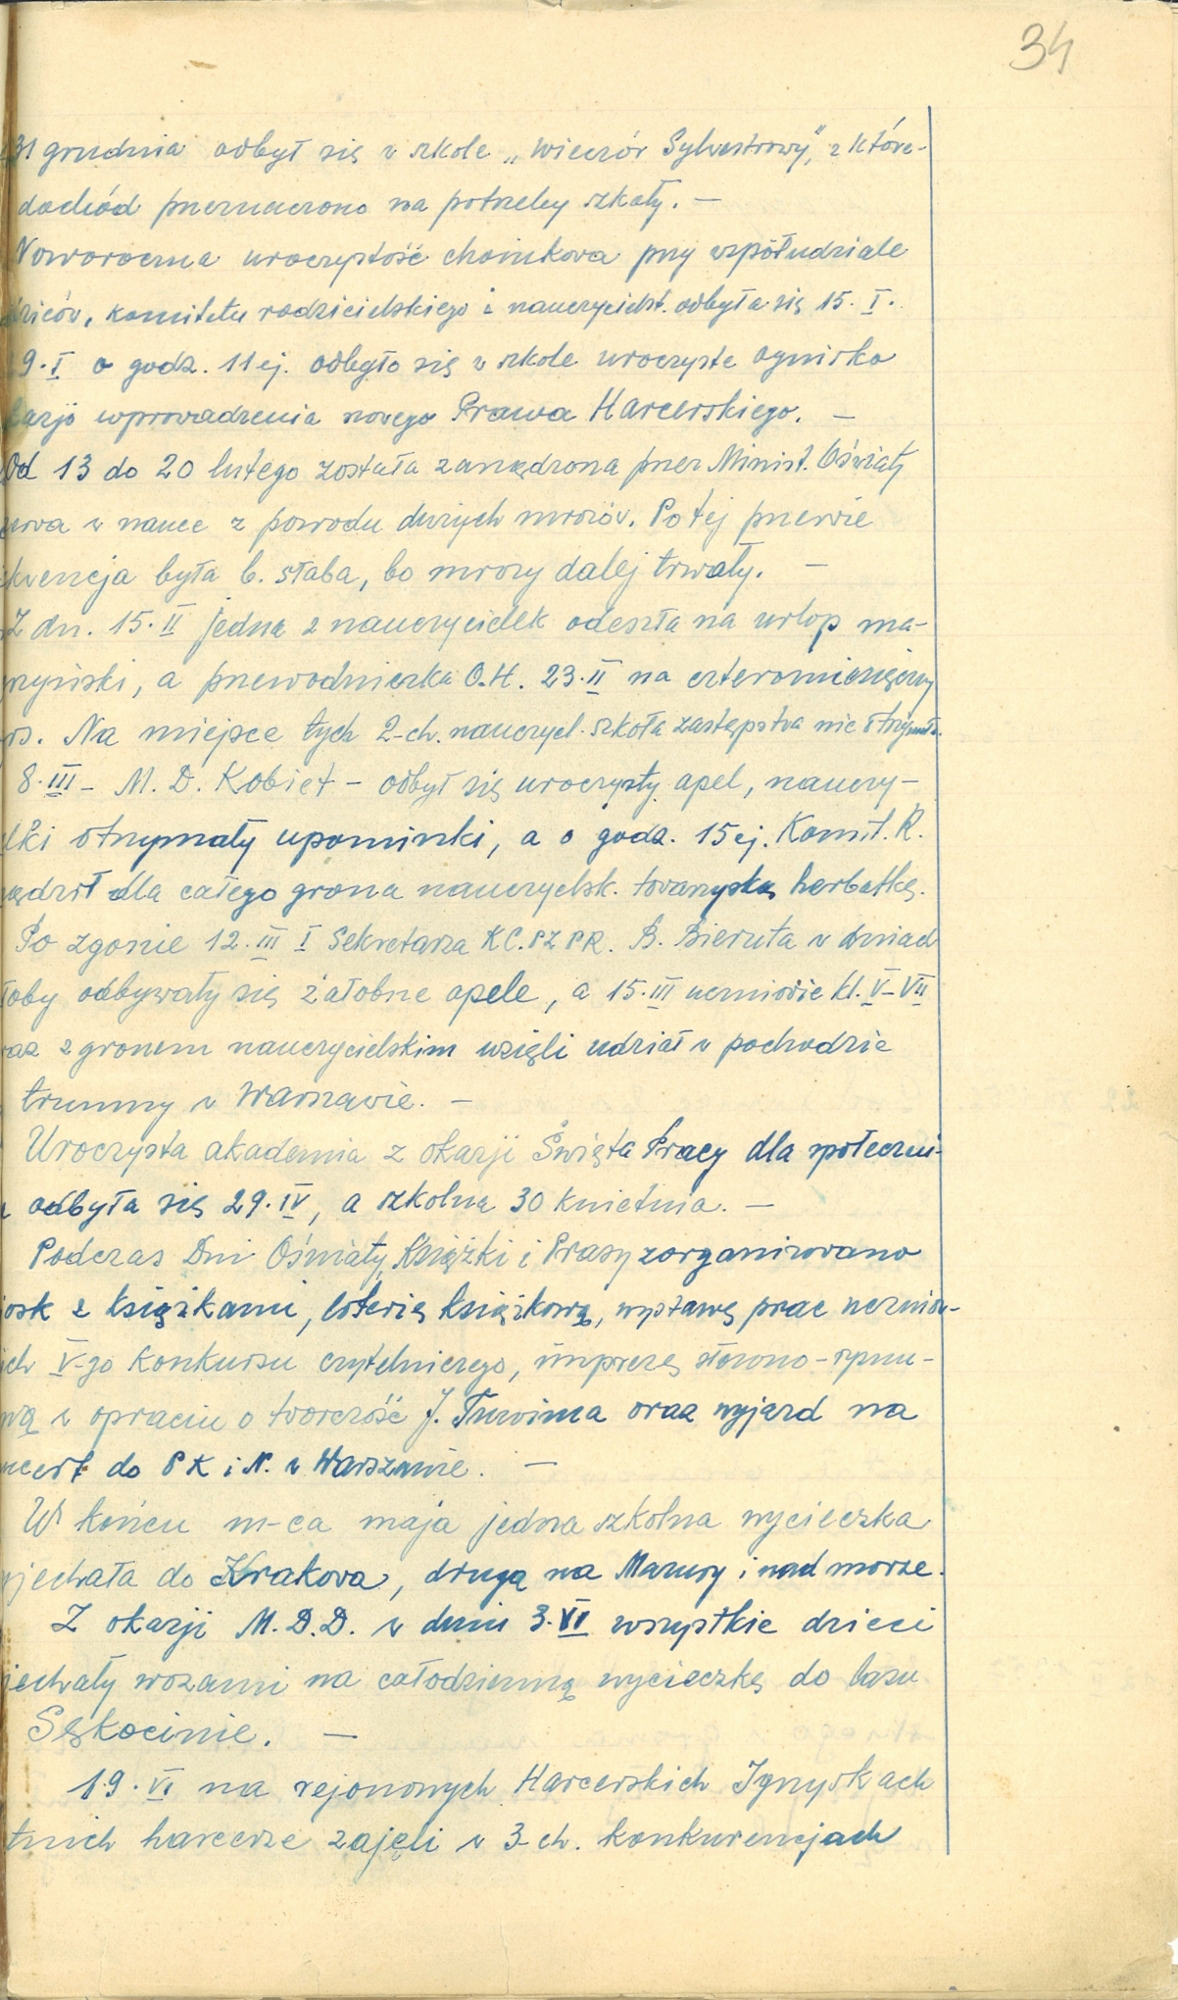 34
31 grudnia odbył się w szkole „Wieczór Sylwestrowy”, z które-
dochód przeznaczono na potrzeby szkoły. —
Noworoczna uroczystość choinkowa przy współudziale
dziców, komitetu rodzicielskiego i nauczycielst. odbyła się 15. I.
29. I o godz. 11ej. odbyło się w szkole uroczyste ognisko
kazji wprowadzenia nowego Prawa Harcerskiego. —
Od 13 do 20 lutego została zarządzona przez Minist. Oświaty
erwa w nauce z powodu dużych mrozów. Po tej przerwie
kwencja była b. słaba, bo mrozy dalej trwały. —
Z dn. 15. II jedna z nauczycielek odeszła na urlop ma-
rzyński, a przewodniczka O.H. 23. II na czteromiesięczny
rs. Na miejsce tych 2-ch. nauczyciel. szkoła zastępstwa nie otrzymała.
8. III – M. D. Kobiet – odbył się uroczysty apel, nauczy-
elki otrzymały upominki, a o godz. 15ej. Komit. R.
ządził dla całego grona nauczycielsk. towarzyską herbatkę.
Po zgonie 12. III I Sekretarza KC. PZPR. B. Bieruta w dniach
łoby odbywały się żałobne apele, a 15. III uczniowie kl. V–VII
raz z gronem nauczycielskim wzięli udział w pochodzie
trumny w Warszawie. —
Uroczysta akademia z okazji Święta Pracy dla społeczeń-
a odbyła się 29. IV, a szkolna 30 kwietnia. —
Podczas Dni Oświaty, Książki i Prasy zorganizowano
iosk z książkami, loterię książkową, wystawę prac uczniow-
ich V-go konkursu czytelniczego, imprezę słowno-rytmi-
ną w oparciu o twórczość J. Tuwima oraz wyjazd na
ncert do PK i N. w Warszawie. —
W końcu m-ca maja jedna szkolna wycieczka
yjechała do Krakowa, druga na Mazury i nad morze.
Z okazji M.D.D. w dniu 3. VI wszystkie dzieci
jechały wozami na całodzienną wycieczkę do lasu
Sękocinie. —
19. VI na rejonowych Harcerskich Igrzyskach
tnich harcerze zajęli w 3-ch. konkurencjach